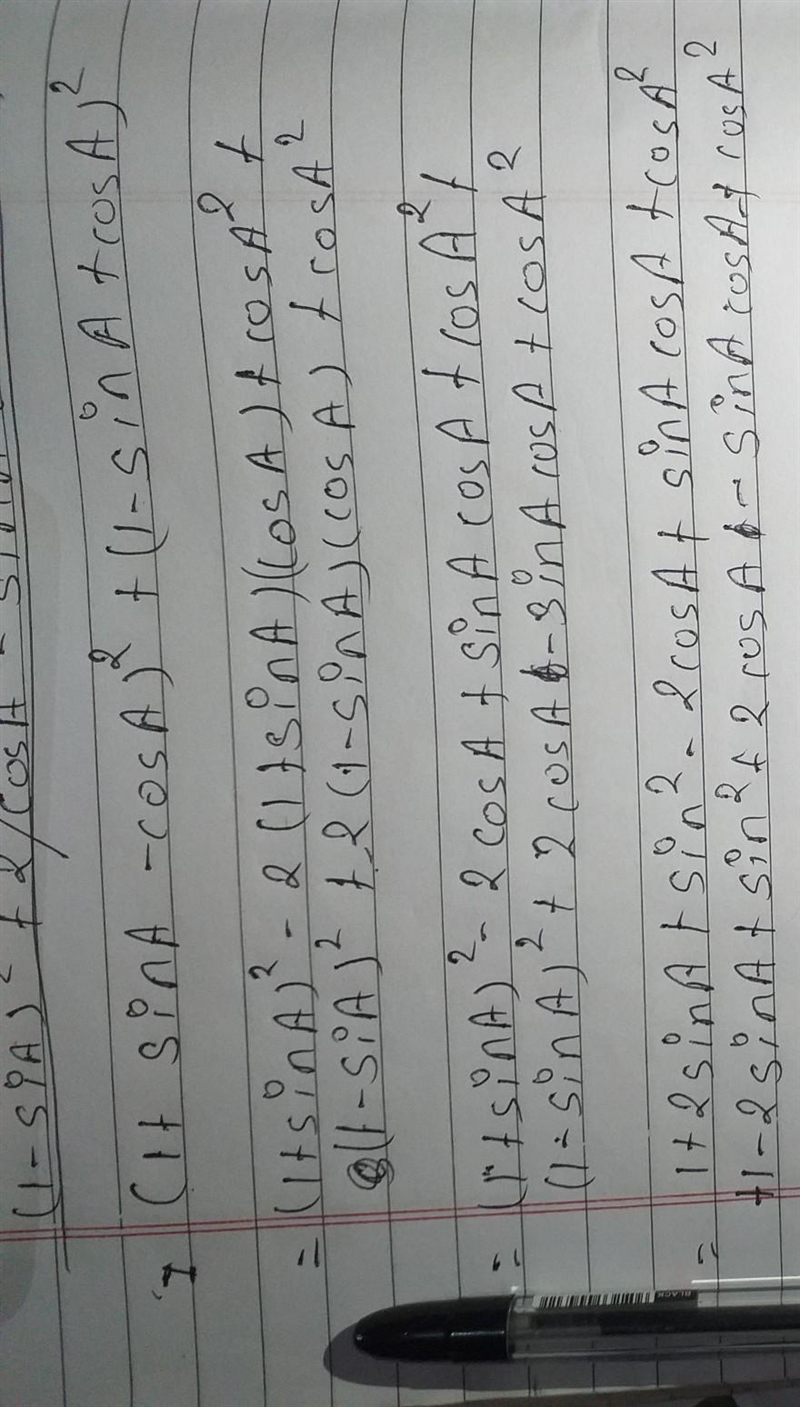 (1 - SiA)² + 2/cosA - sin
7 (1 + sinA - cosA)² + (1 - sinA + cosA)²
= (1 + sinA)² - 2(1 + sinA)(cosA) + cosA² +
(1 - SiA)² + 2(1 - sinA)(cosA) + cosA²
= (1 + sinA)² - 2cosA + sinA cosA + cosA² +
(1 - sinA)² + 2cosA - sinA cosA + cosA²
= 1 + 2sinA + sin² - 2cosA + sinA cosA + cosA²
+1 - 2sinA + sin² + 2cosA - sinA cosA + cosA²
BLACK